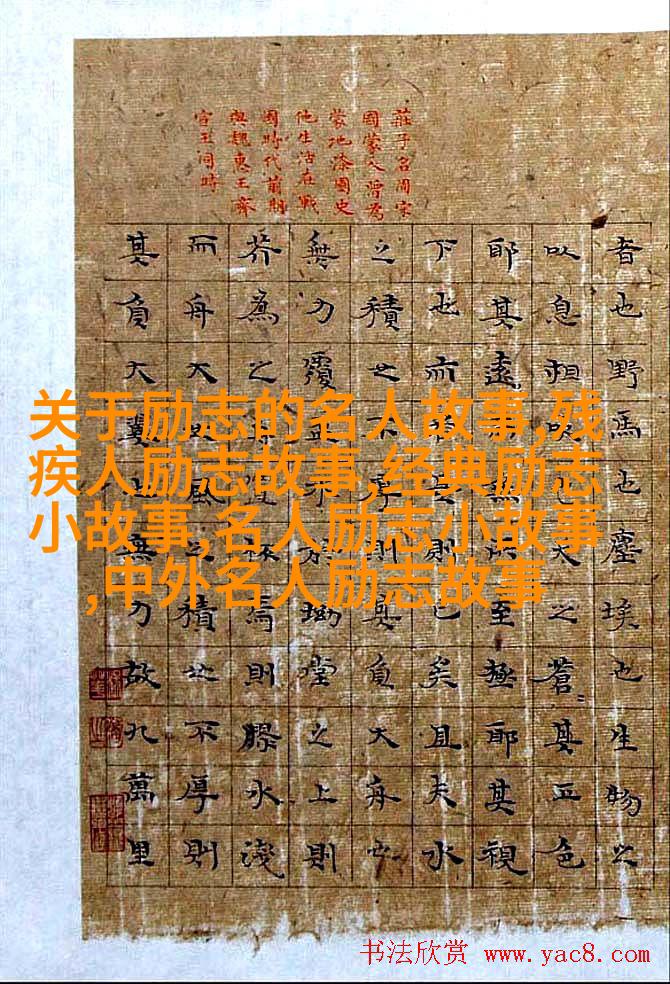 莊子名周宋
國蒙人曾為
蒙地漆園史
他生活在戰
國時代前期
與魏惠王齊
宣王同時
者也野馬也塵埃也生物之
以息相吹也天之蒼〻其正色
耶其遠而無所至極耶其視
下也而是則已矣且夫水
之積也不厚則其負大舟也
無力覆水於坳堂之上則
芥為之舟杯焉則膠水淺
而舟大也風之積也不厚則
其負大翼也無力故九萬里
关于励志的名人故事,残
疾人励志故事,经典励志
小故事,名人励志小故事
,中外名人励志故事
书法欣赏 www.yac8.com